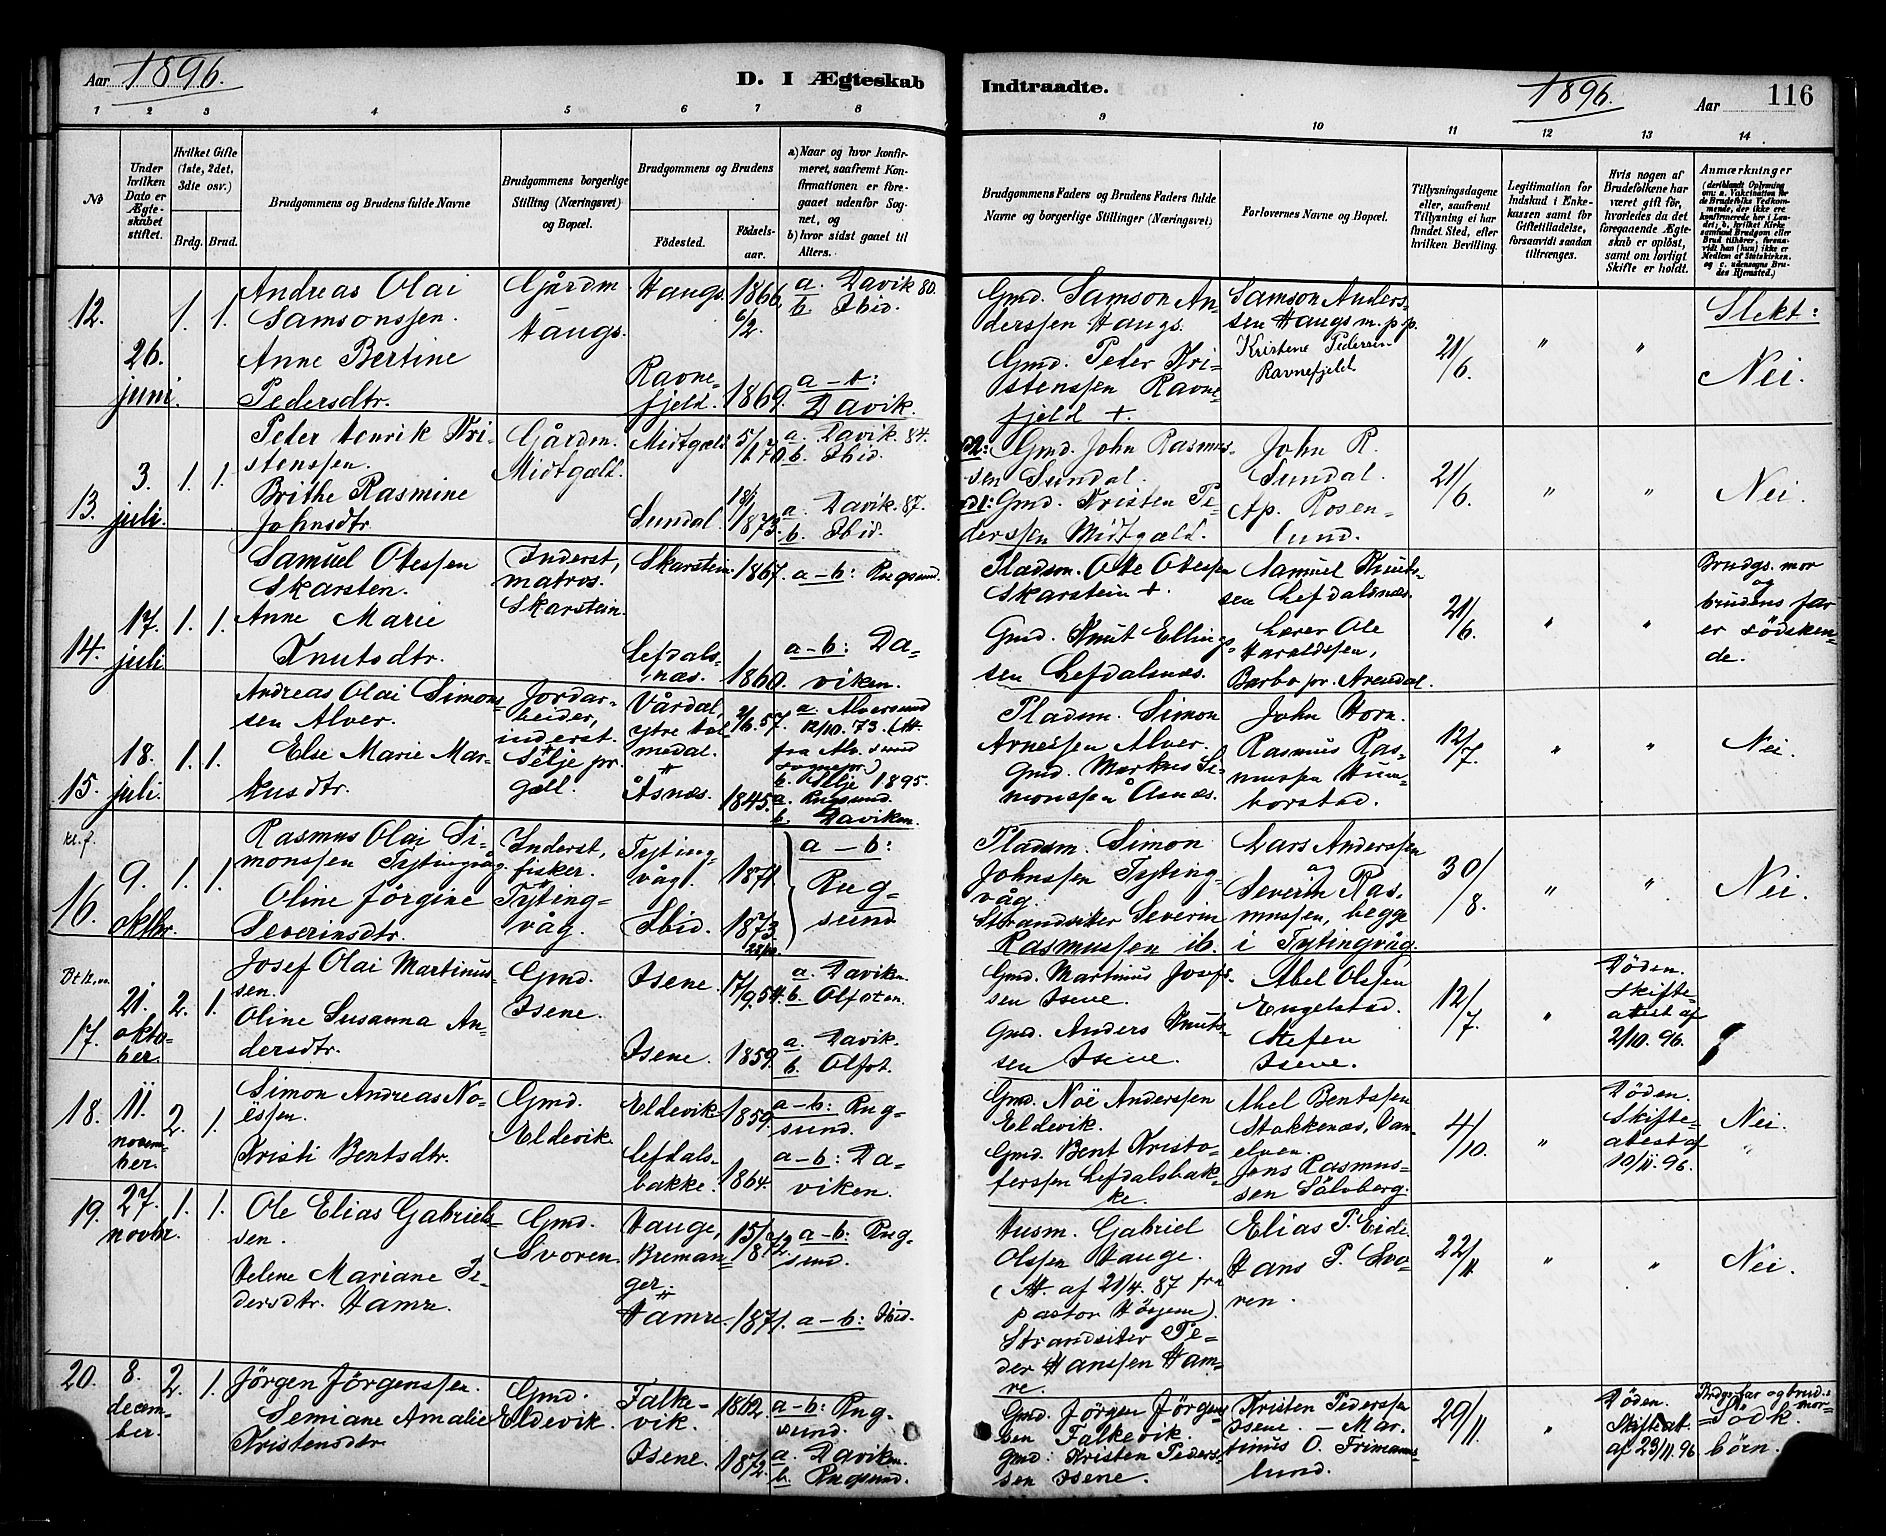 Aar 1896.
D. I Ægteskab
Indtraadte.
1896.
Aar 116
1 2 3 4 5 6 7 8
9 10 11 12 13 14
No
Under hvilken Dato er Ægteskabet stiftet.
Hvilket Gifte (1ste, 2det, 3die osv.)
Brdg. Brud.
Brudgommens og Brudens fulde Navne
Brudgommens borgerlige Stilling (Næringsvei) og Bopæl.
Brudgommens og Brudens
Födested.
Födselsaar.
a) Naar og hvor konfirmeret, saafremt Konfirmationen er foregaaet udenfor Sognet, og
b) hvor sidst gaaet til Alters.
Brudgommens Faders og Brudens Faders fulde Navne og borgerlige Stillinger (Næringsvei)
Forlovernes Navne og Bopæl.
Tillysningsdagene eller, saafremt Tillysning ei har fundet Sted, efter hvilken Bevilling.
Legitimation for Indskud i Enkekassen samt for Giftetilladelse, forsaavidt saadan tiltrænges.
Hvis nogen af Brudefolkene har været gift för, hvorledes da det foregaaende Ægteskab er oplöst, samt om lovligt Skifte er holdt.
Anmærkninger
(deriblandt Oplysning om: a. Vakcination for de Brudefolks Vedkommende, der ikke ere konfirmerede her i Landet; b. hvilket Kirkesamfund Brudgom eller Brud tilhörer, forsaavidt han (hun) ikke er Medlem af Statskirken, og c. udensogns Brudes Hjemsted.)
12.
26. juni.
1. 1.
Andreas Olai
Samsonssen.
Anne Bertine
Pedersdtr.
Gårdm.
Haugs.
Haugs.
Ravne-
fjeld.
1866
6/2
1869.
a. Davik 80.
b. Ibid.
a-b:
Davik.
Gmd. Samson An-
derssen Haugs.
Gmd. Peder Kri-
stenssen Ravne-
fjeld +
Samson Anders-
sen Haugs m.p.p.
Kristene Pedersen
Ravnefjeld
21/6.
" "
Slekt:
Nei.
13.
3. juli.
1. 1.
Peder Henrik Kri-
stenssen.
Brithe Rasmine
Johnsdtr.
Gårdm.
Midtgæld.
Midtgæld
Sundal.
5/1 70
18/1 1873.
a. Davik. 84.
b. Ibid.
a. Davik. 87.
b. Ibid.
Gmd. John Rasmus-
sen Sundal.
Gmd. Kristen Pe-
derssen Midtgæld.
John R.
Sundal.
Ap. Rosen-
lund.
21/6.
" "
Nei.
14.
17. juli
1. 1.
Samuel Otessen
Skarsten.
Anne Marie
Knutsdtr.
Inderst,
matros.
Skarstein.
Skarstein.
Lefdals-
næs.
1867.
1860.
a-b: Rugsund.
a-b: Da-
viken.
Pladsm. Ote Otessen
Skarstein +.
Gmd. Knut Ellings-
sen Lefdalsnæs.
Samuel Knuts-
sen Lefdalsnæs.
Lærer Ole
Haraldssen,
Barbo pr. Arendal.
21/6.
" "
Brudgs. mor
og
brudens far
er södsken-
de.
15.
18. juli.
1. 1.
Andreas Olai Simons-
sen Alver.
Else Marie Mar-
kusdtr.
Jordar-
beider,
inderst.
Selje pr.
gæld.
Vårdal,
ytre Hol-
medal.
Åsnæs.
2/6. 57.
1845.
a. Alversund
12/10. 73. (Att.
fra Alv. sund
sognepr.)
b. Selje 1895.
a. Rugsund.
b. Daviken.
Pladsm. Simon
Arnessen Alver.
Gmd. Markus Si-
monssen Åsnæs.
John Horn.
Rasmus Ras-
mussen Hum-
borstad.
12/7.
" "
Nei.
Kl. f.
16.
9. oktbr.
1. 1.
Rasmus Olai Si-
monssen Tytingvåg.
Oline Jörgine
Severinsdtr.
Inderst,
fisker.
Tyting-
våg.
Tyting-
våg.
Ibid.
1871.
1873.
a-b:
Rug-
sund
Pladsm. Simon
Johnssen Tyting-
våg.
Strandsitter Severin
Rasmussen ib.
Lars Anderssen
og
Severin Ras-
mussen, begge
i Tytingvåg.
30/8.
" "
Nei.
17.
21. okto-
ber.
2. 1.
Josef Olai Martinus-
sen.
Oline Susanna An-
dersdtr.
Gmd.
Isene.
Isene.
Isene.
17/9. 54.
1859.
a. Daviken.
b. Olfoten.
a. Davik.
b. Olfot.
Gmd. Martinus Josefs-
sen Isene.
Gmd. Anders Knuts-
sen Isene.
Abel Olssen
Engelstad.
Stefen
Isene.
12/7.
"
Döden.
Skifte-
atest af
2/10. 96.
18.
11. novem-
ber.
2. 1.
Simon Andreas No-
ëssen.
Kristi Bentsdtr.
Gmd.
Eldevik.
Eldevik
Lefdals-
bakke.
1859.
1864.
a-b: Rug-
sund.
a-b: Da-
viken.
Gmd. Noë Anderssen
Eldevik.
Gmd. Bent Kristo-
ferssen Lefdalsbak-
ke.
Abel Bentssen
Stokkenæs, Van-
elven.
Jens Rasmus-
sen Sölvberg.
4/10.
"
Döden.
Skifte-
atest af
10/11. 96.
Nei.
19.
27. novbr.
1. 1.
Ole Elias Gabriels-
sen.
Helene Mariane Pe-
dersdtr. Hamre.
Gmd.
Svoren.
Hauge,
Breman-
ger.
Hamre.
1871.
a-b: Rug-
sund.
a-b: Ibid.
Husm. Gabriel
Olssen Hauge.
(Att. af 21/4. 87 fra
pastor Hörgene).
Strandsitter Pe-
der Hanssen Ham-
re.
Elias P. Eide.
Hans P. Svo-
ren.
22/11.
" "
Nei.
20.
8. decem-
ber.
2. 1.
Jörgen Jörgenssen.
Semiane Amalie
Kristensdtr.
Gmd.
Eldevik.
Falke-
vik.
Isene.
1862.
1872.
a-b: Rug-
sund.
a. Daviken.
b. Rugsund.
Gmd. Jörgen Jörgens-
sen Falkevik.
Gmd. Kristen Peders-
sen Isene.
Kristen Pederssen
Isene. - Mar-
tinus O. Frimanns-
lund.
29/11.
"
Döden.
Skifteat.
af 23/11. 96.
Brdgs far og brud. s
mor
= Södk.
börn.